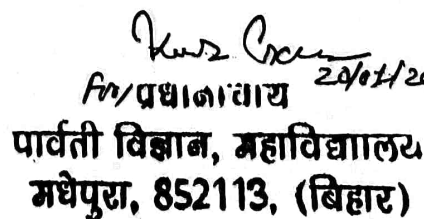 For/प्रधानाचाय
पार्वती विज्ञान, महाविद्याालय
मधेपुरा, 852113, (बिहार)